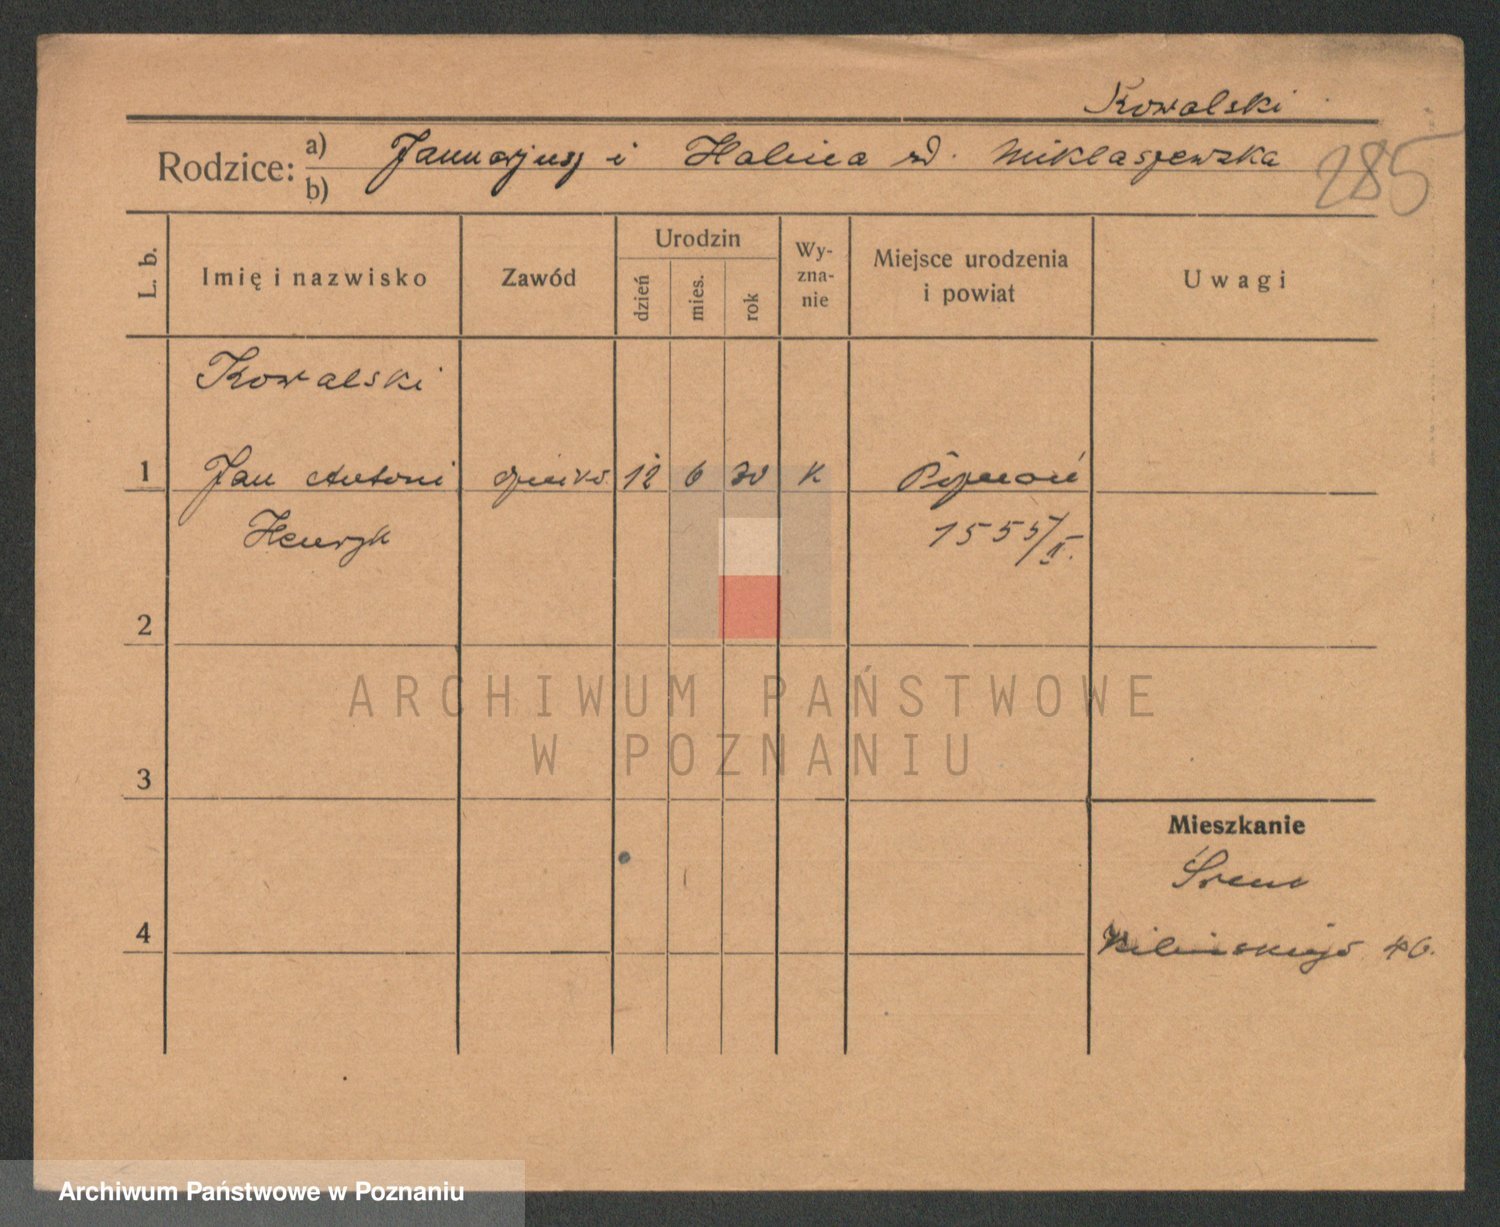 Kowalski
Rodzice: a) Januarjusz i Halina rd. Miklaszewska
b)
285
L. b.
Imię i nazwisko
Zawód
Urodzin
dzień
mies.
rok
Wy-
zna-
nie
Miejsce urodzenia
i powiat
Uwagi
Kowalski
1 Jan Antoni dziecko 12 6 30 K Poznań
Henryk 1555/II.
2
ARCHIWUM PAŃSTWOWE
W POZNANIU
3
Mieszkanie
Śrem
4 Kilińskiego 46.
Archiwum Państwowe w Poznaniu